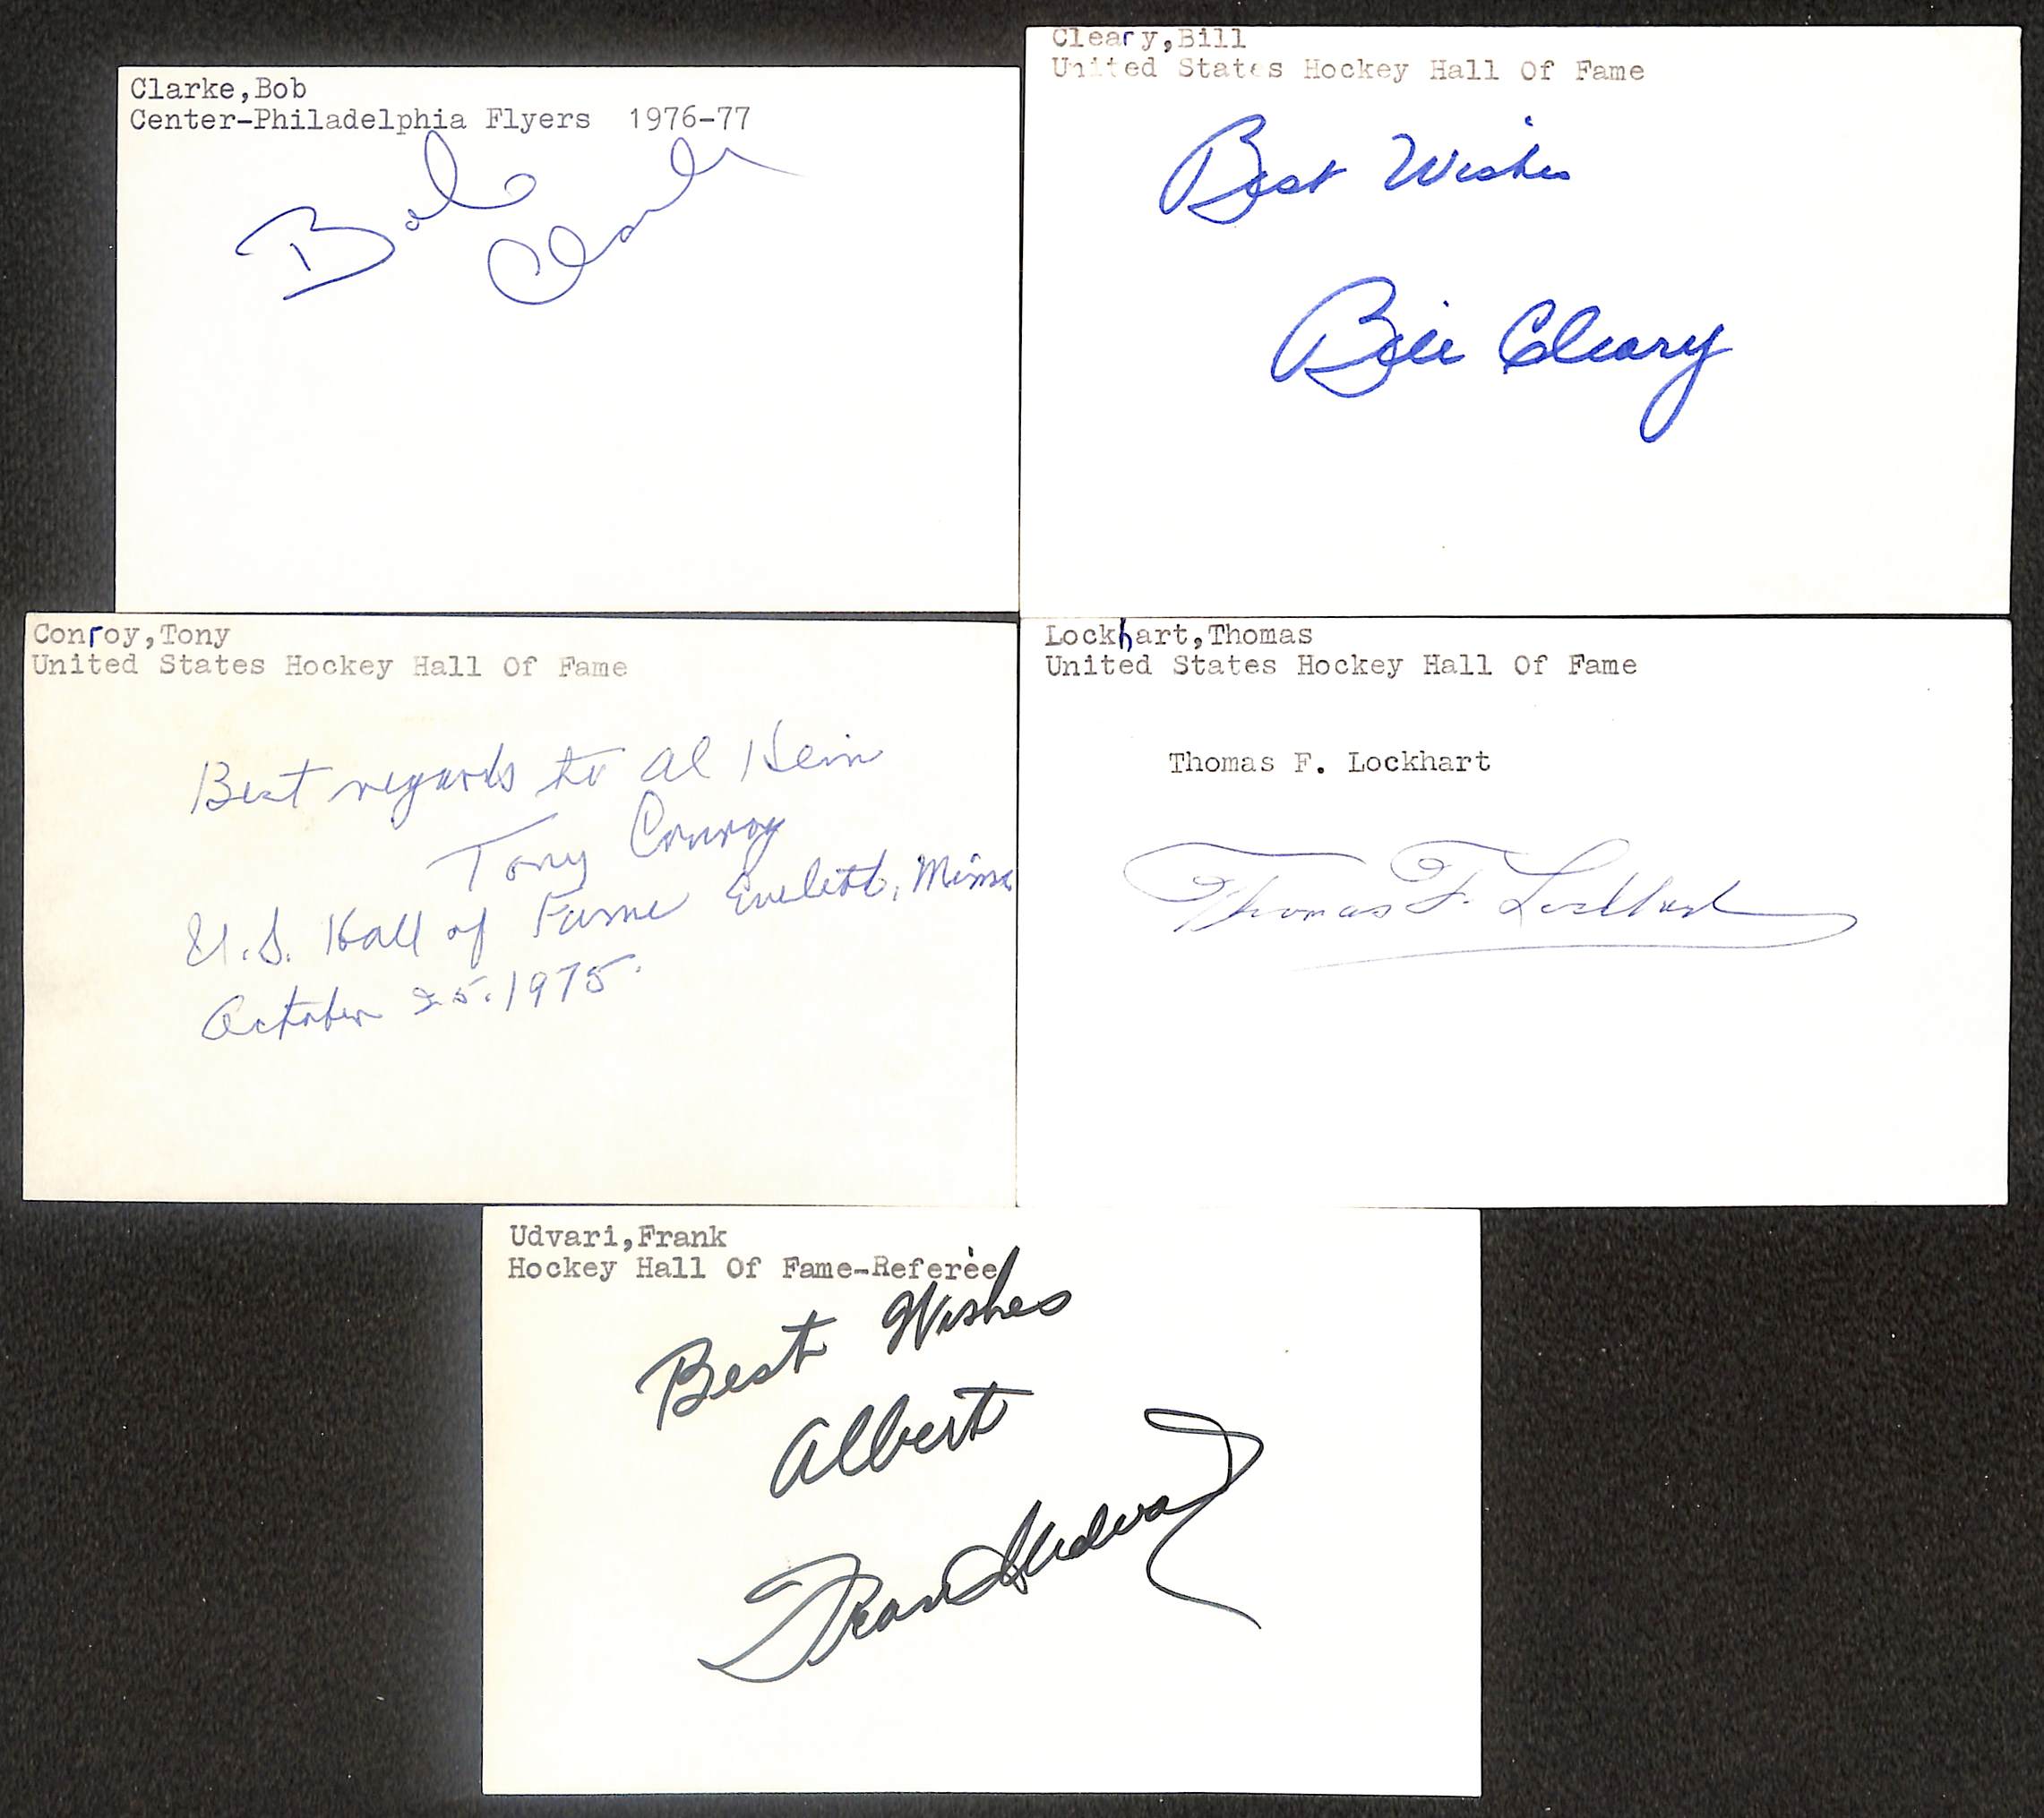 Clarke,Bob
Center-Philadelphia Flyers 1976-77
Bob Clarke
Cleary,Bill
United States Hockey Hall Of Fame
Best Wishes
Bill Cleary
Conroy,Tony
United States Hockey Hall Of Fame
Best regards to Al Hein
Tony Conroy
U.S. Hall of Fame Eveleth, Minn
October 25. 1975.
Lockhart,Thomas
United States Hockey Hall Of Fame
Thomas F. Lockhart
Thomas F. Lockhart
Udvari,Frank
Hockey Hall Of Fame-Referee
Best Wishes
Albert
Frank Udvari